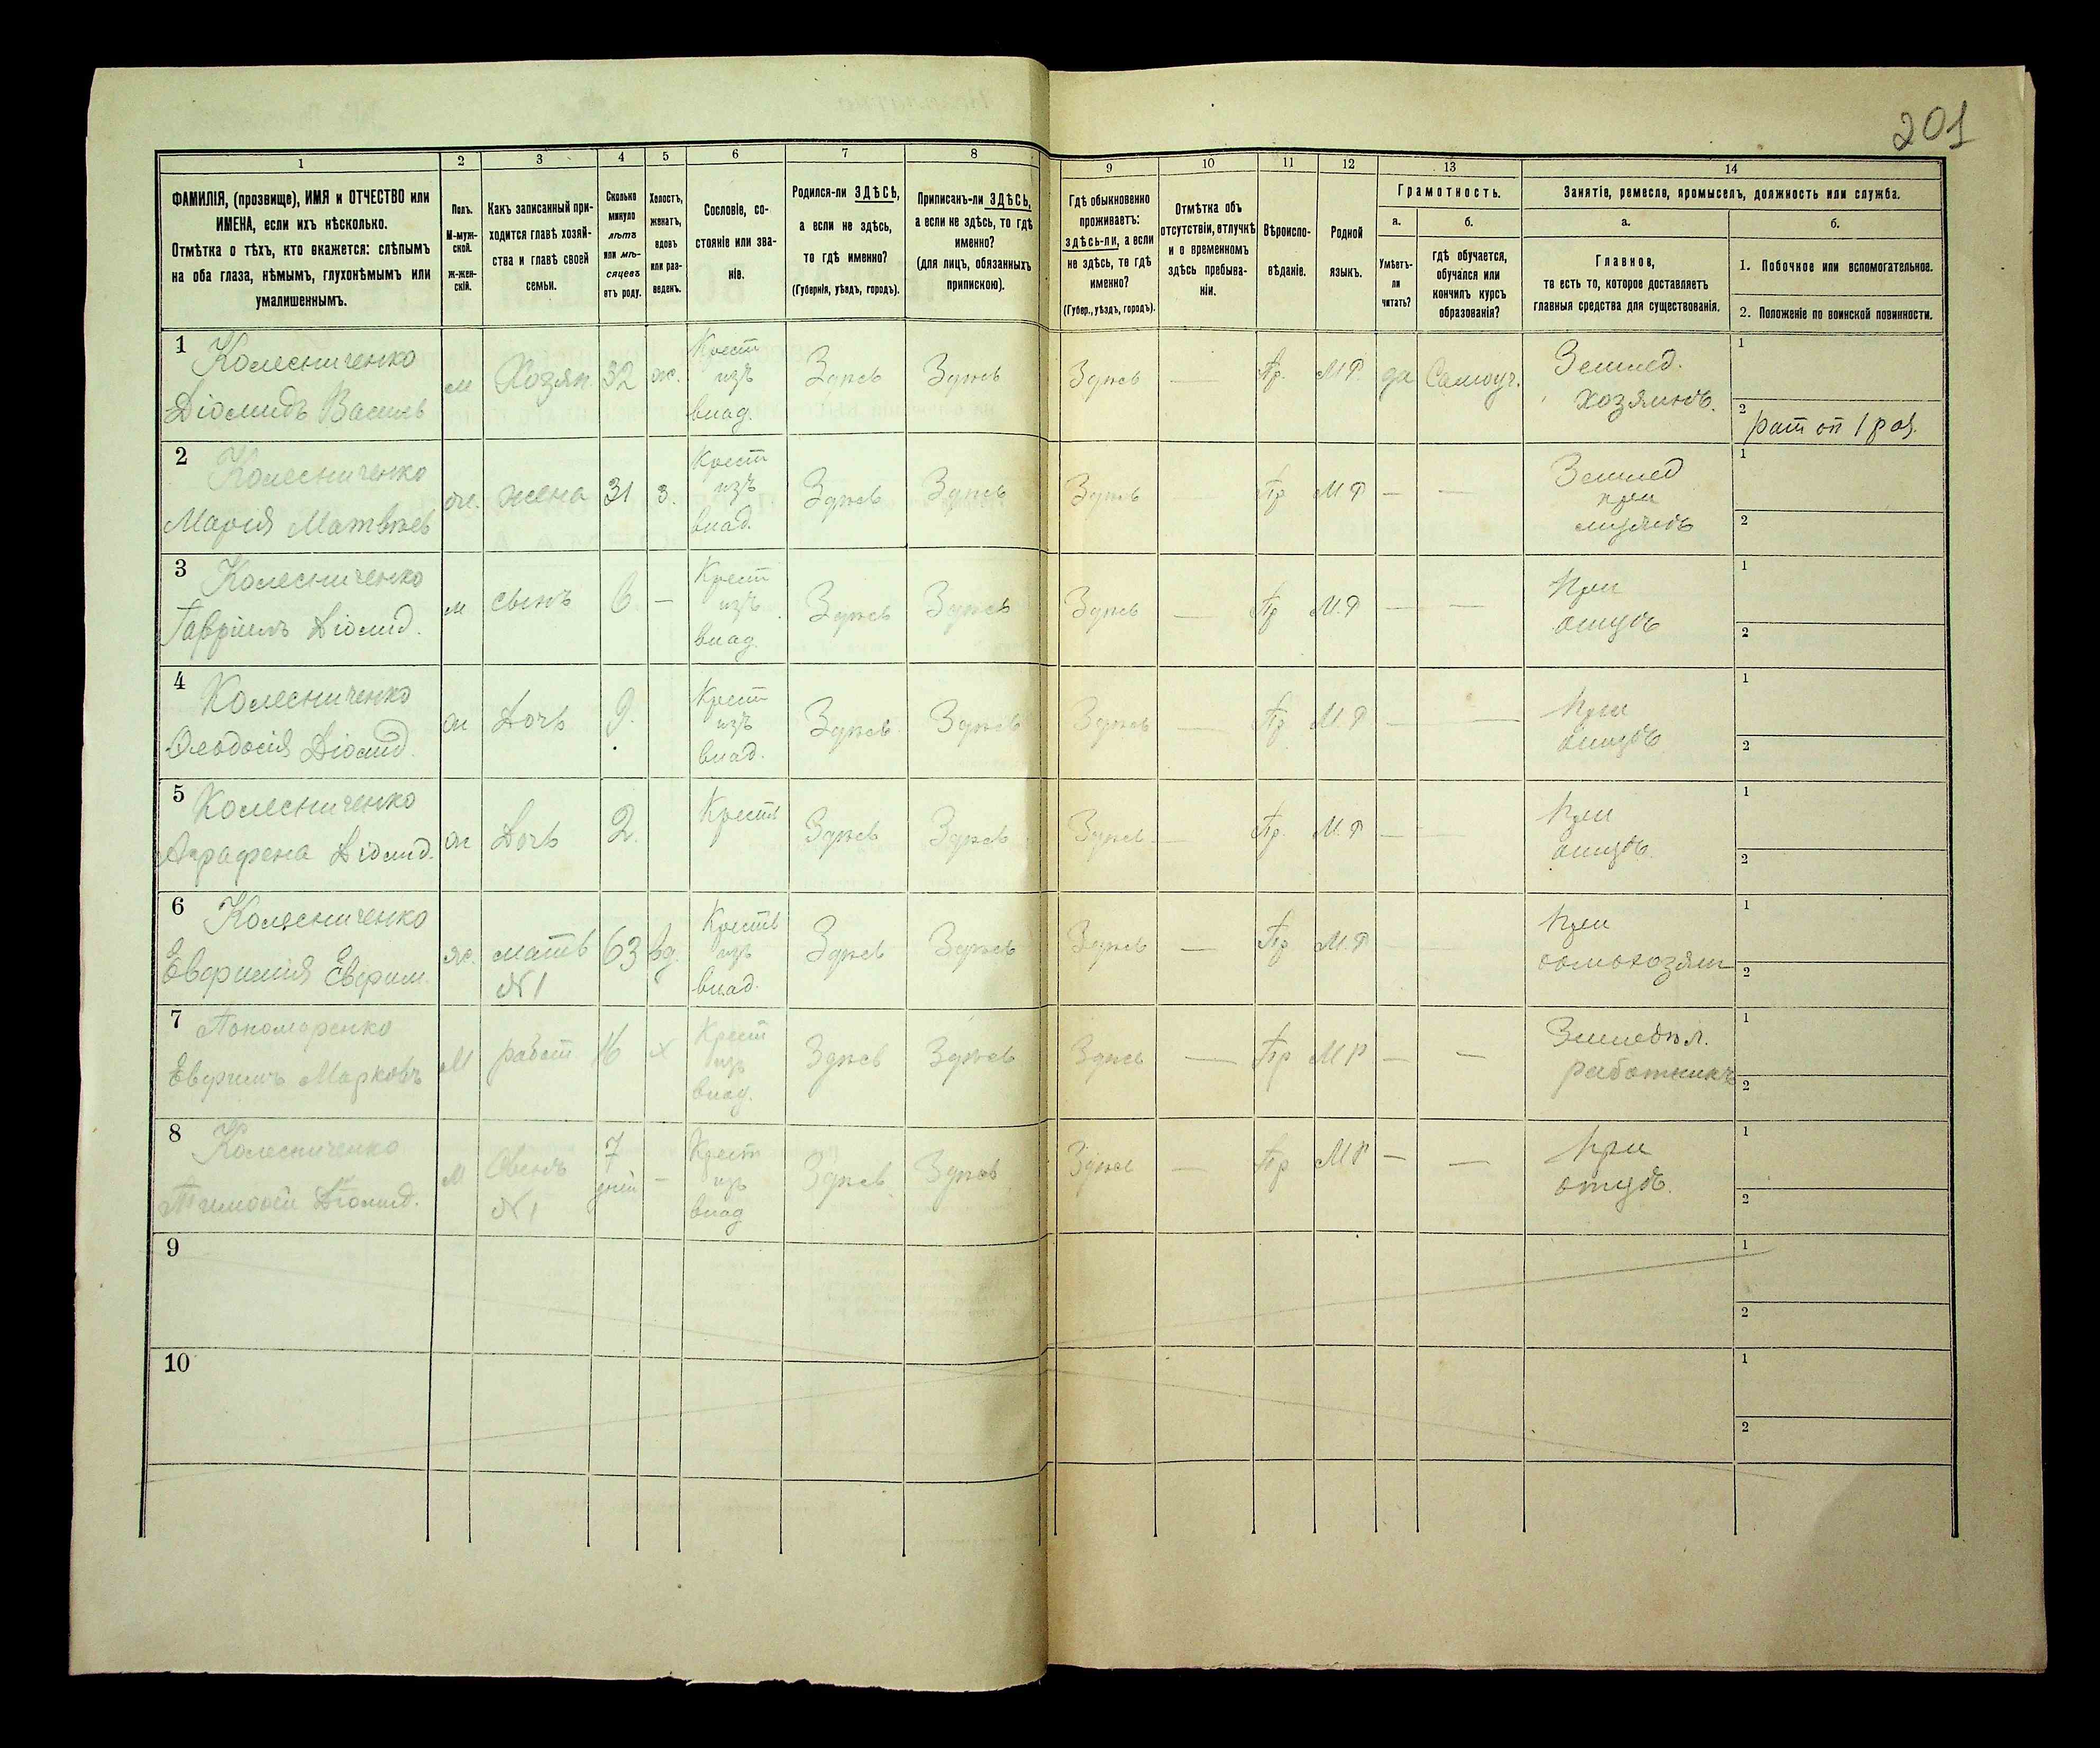 201
1 2 3 4 5 6 7 8 9 10 11 12 13 14
ФАМИЛІЯ, (прозвище), ИМЯ и ОТЧЕСТВО или
ИМЕНА, если ихъ нѣсколько.
Отмѣтка о тѣхъ, кто окажется: слѣпымъ
на оба глаза, нѣмымъ, глухонѣмымъ или
умалишеннымъ.
Полъ.
М-муж-
ской.
Ж-жен-
скій.
Какъ записанный при-
ходится главѣ хозяй-
ства и главѣ своей
семьи.
Сколько
минуло
лѣтъ
или мѣ-
сяцевъ
отъ роду.
Холостъ,
женатъ,
вдовъ
или раз-
веденъ.
Сословіе, со-
стояніе или зва-
ніе.
Родился-ли ЗДѢСЬ,
а если не здѣсь,
то гдѣ именно?
(Губернія, уѣздъ, городъ).
Приписанъ-ли ЗДѢСЬ,
а если не здѣсь, то гдѣ
именно?
(для лицъ, обязанныхъ
припискою).
Гдѣ обыкновенно
проживаетъ:
здѣсь-ли, а если
не здѣсь, то гдѣ
именно?
(Губер., уѣздъ, городъ).
Отмѣтка объ
отсутствіи, отлучкѣ
и о временномъ
здѣсь пребыва-
ніи.
Вѣроиспо-
вѣданіе.
Родной
языкъ.
Грамотность.
а.
Умѣетъ-
ли
читать?
б.
гдѣ обучается,
обучался или
кончилъ курсъ
образованія?
Занятіе, ремесло, промыселъ, должность или служба.
а.
Главное,
то есть то, которое доставляетъ
главныя средства для существованія.
б.
1. Побочное или вспомогательное.
2. Положеніе по воинской повинности.
1 Колесниченко
Діомидъ Васильев
м Хозяи. 32 ж.
Крест
изъ
влад.
Здѣсь Здѣсь Здѣсь — Пр. М Р. да Самоуч.
Землед.
хозяинъ.
1
2 рат оп 1 раз.
2 Колесниченко
Марія Матвѣев
ж. жена 31 з.
Крест
изъ
влад.
Здѣсь Здѣсь Здѣсь — Пр М Р — —
Землед
при
мужѣ
1
2
3 Колесниченко
Гавріилъ Діомид.
м сынъ 6 —
Крест
изъ
влад.
Здѣсь Здѣсь Здѣсь — Пр М.Р — —
При
отцѣ
1
2
4 Колесниченко
Ѳеодосія Діомид.
ж Дочь 9.
Крест
изъ
влад.
Здѣсь Здѣсь Здѣсь — Пр М.Р — —
При
отцѣ
1
2
5 Колесниченко
Аграфена Діомид.
ж Дочь 2.
Крест
Здѣсь Здѣсь Здѣсь — Пр. М.Р — —
При
отцѣ
1
2
6 Колесниченко
Евфимія Ефим.
ж. мать
№1
63 вд.
Крест
изъ
влад.
Здѣсь Здѣсь Здѣсь — Пр М.Р
При
домохозяин
1
2
7 Пономаренко
Ефимъ Марковъ
М работ. 16 х
Крест
изъ
влад.
Здѣсь Здѣсь Здѣсь — Пр М Р — —
Землед­ѣл.
работникъ
1
2
8 Колесниченко
Тимоѳей Діомид.
М Сынъ
№1
7
дней —
Крест
изъ
влад
Здѣсь Здѣсь Здѣсь — Пр М Р — —
При
отцѣ.
1
2
9
1
2
10
1
2